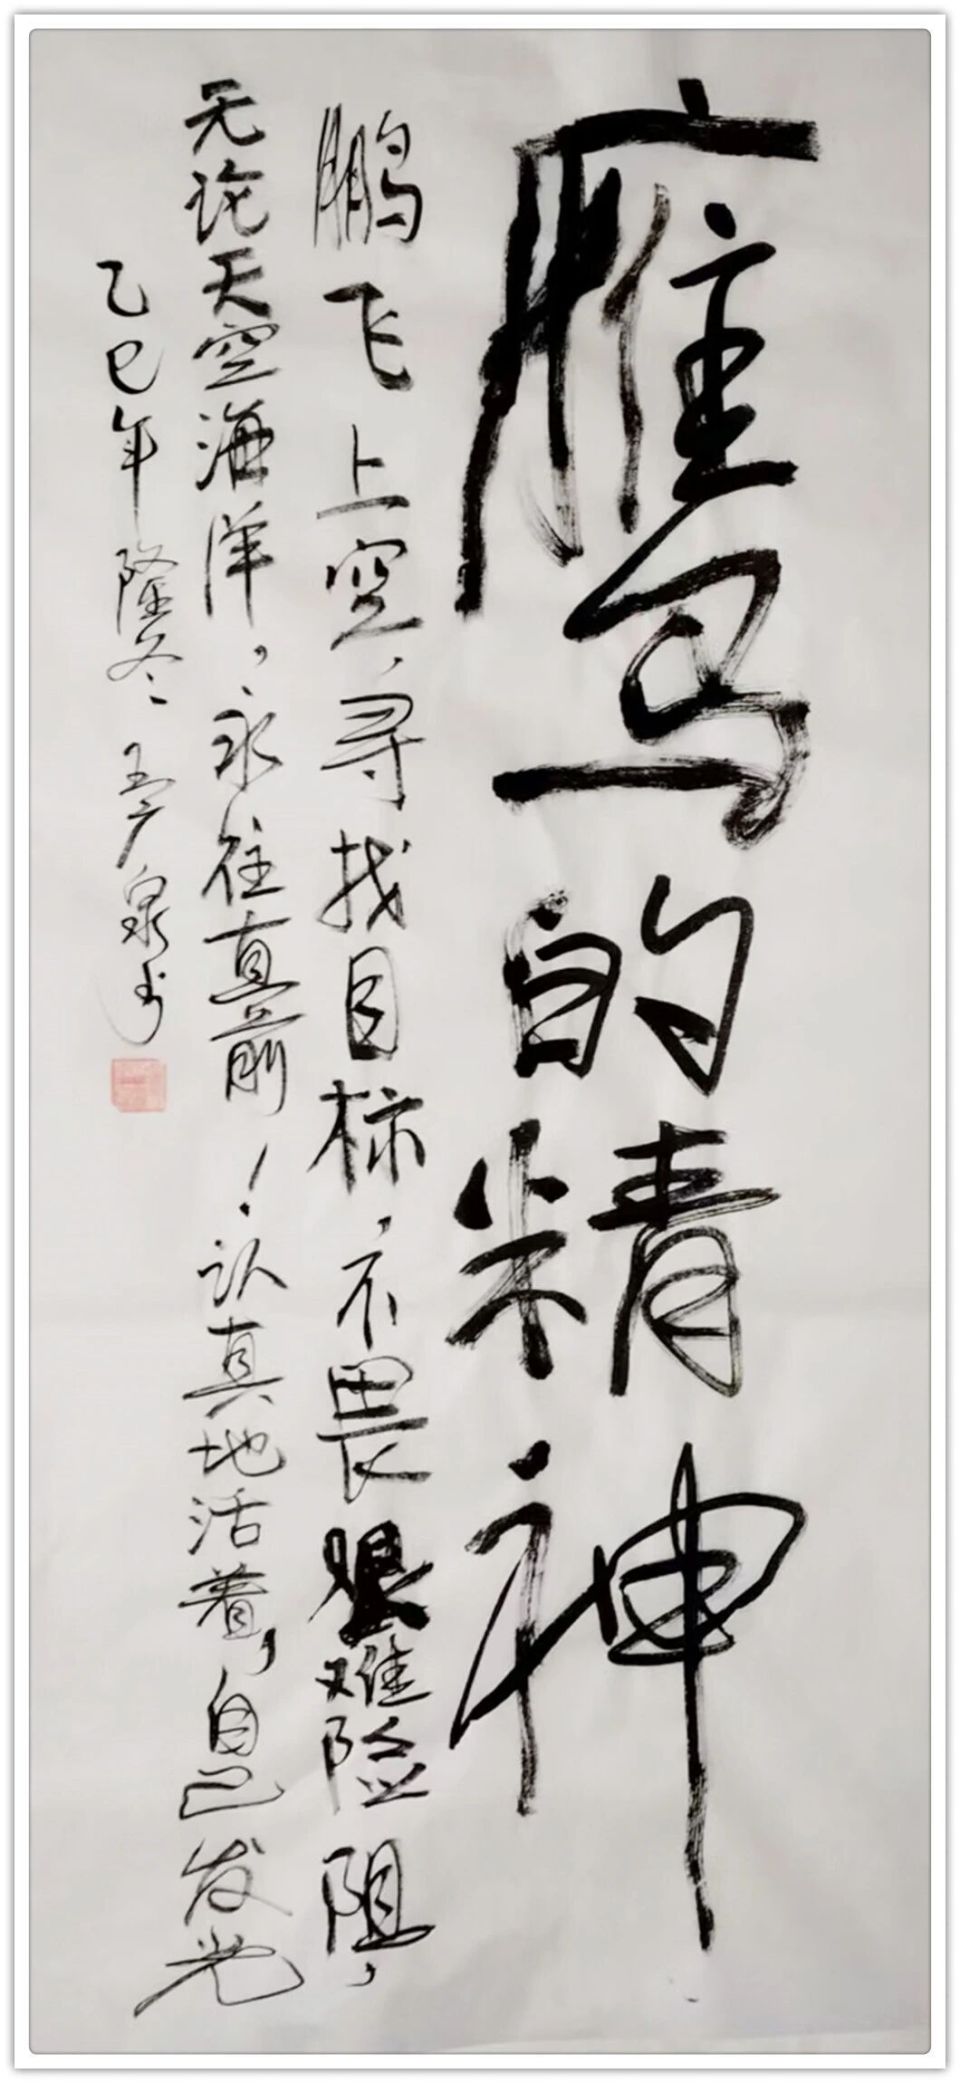 鹰的精神
鹏飞上空，寻找目标，不畏艰难险阻，
无论天空海洋，永往直前！认真地活着，自己发光
乙巳年隆冬 泉书